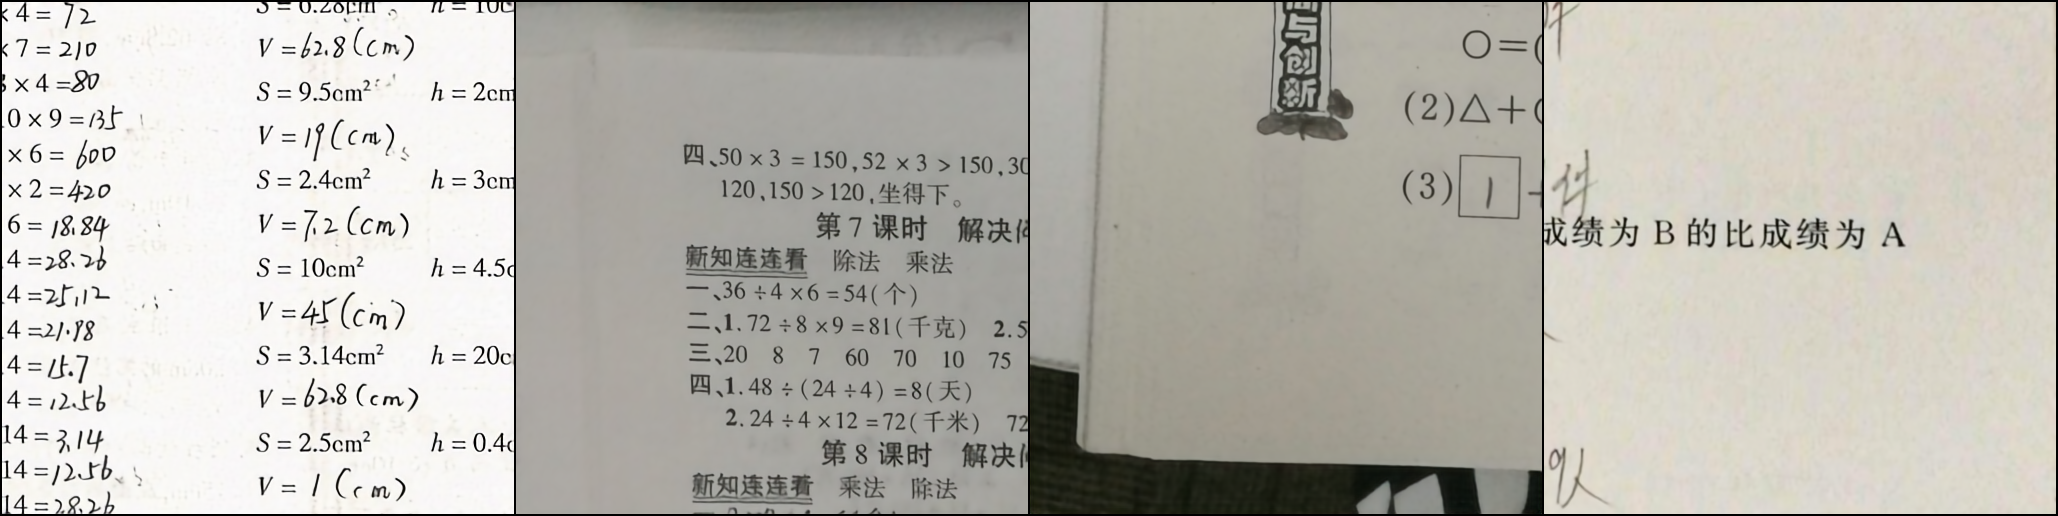 ×4=72
×7=210
×4=80
0×9=135
×6=600
×2=420
6=18.84
4=28.26
4=25.12
4=21.98
4=15.7
4=12.56
14=3.14
14=12.56
14=28.26
S=6.28cm² h=10c
V=62.8(cm)
S=9.5cm² h=2cm
V=19(cm)
S=2.4cm² h=3cm
V=7.2(cm)
S=10cm² h=4.5c
V=45(cm)
S=3.14cm² h=20c
V=62.8(cm)
S=2.5cm² h=0.4c
V=1(cm)
四、50×3=150,52×3>150,30
120,150>120,坐得下。
第7课时 解决问
新知连连看 除法 乘法
一、36÷4×6=54(个)
二、1.72÷8×9=81(千克) 2.5
三、20 8 7 60 70 10 75
四、1.48÷(24÷4)=8(天)
2.24÷4×12=72(千米) 72
第8课时 解决问
新知连连看 乘法 除法
与创新
○=(
(2)△+
(3)1
件
成绩为 B 的比成绩为 A